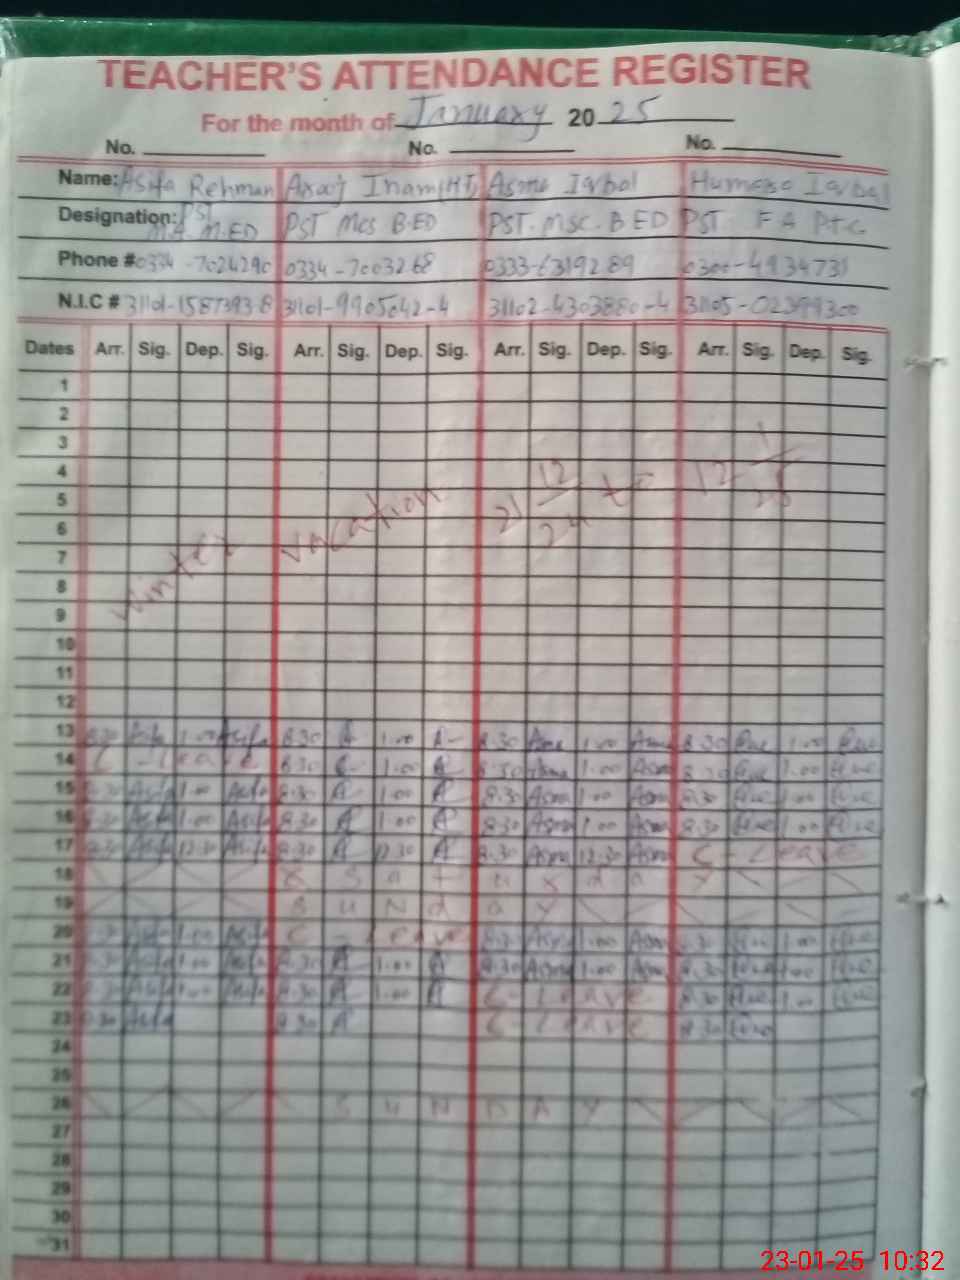 TEACHER'S ATTENDANCE REGISTER
For the month of January 2025
No. No. No.
Name: Asifa Rehman Inam (HT) Asma Iqbal Iqbal
Designation: PST M.A. M.ED PST Mcs B.ED PST. MSC. B ED PST F A PTC
Phone # 0334-7024290 0334-7003268 0333-6319289 0300-4934731
N.I.C # 31101-1587393-8 31101-9905642-4 31102-4303880-4 31105-02399300
Dates Arr. Sig. Dep. Sig. Arr. Sig. Dep. Sig. Arr. Sig. Dep. Sig. Arr. Sig. Dep. Sig.
1
2
3
4
5
6
7
8
9
10
11
12
winter vacation 21 12/24 to 12 1/25
13 8:30 Asifa 1:00 Asifa 8:30 A 1:00 A 8:30 Asma 1:00 Asma 8:30 1:00
14 C - Leave 8:30 1:00 8:30 Asma 1:00 Asma 8:30 1:00
15 8:30 Asifa 1:00 Asifa 8:30 A 1:00 A 8:30 Asma 1:00 Asma 8:30 1:00
16 8:30 Asifa 1:00 Asifa 8:30 A 1:00 A 8:30 Asma 1:00 Asma 8:30 1:00
17 8:30 Asifa 12:30 Asifa 8:30 A 12:30 A 8:30 Asma 12:30 Asma C - Leave
18 Saturday
19 SuNday
20 8:30 Asifa 1:00 Asifa C - Leave 8:30 Asma 1:00 Asma 8:30 1:00
21 8:30 Asifa 1:00 Asifa 8:30 A 1:00 A 8:30 Asma 1:00 Asma 8:30 1:00
22 8:30 Asifa 1:00 Asifa 8:30 A 1:00 A C - Leave 8:30 1:00
23 8:30 Asifa 8:30 A C - Leave 8:30
24
25
26 SUNDAY
27
28
29
30
31
23-01-25 10:32